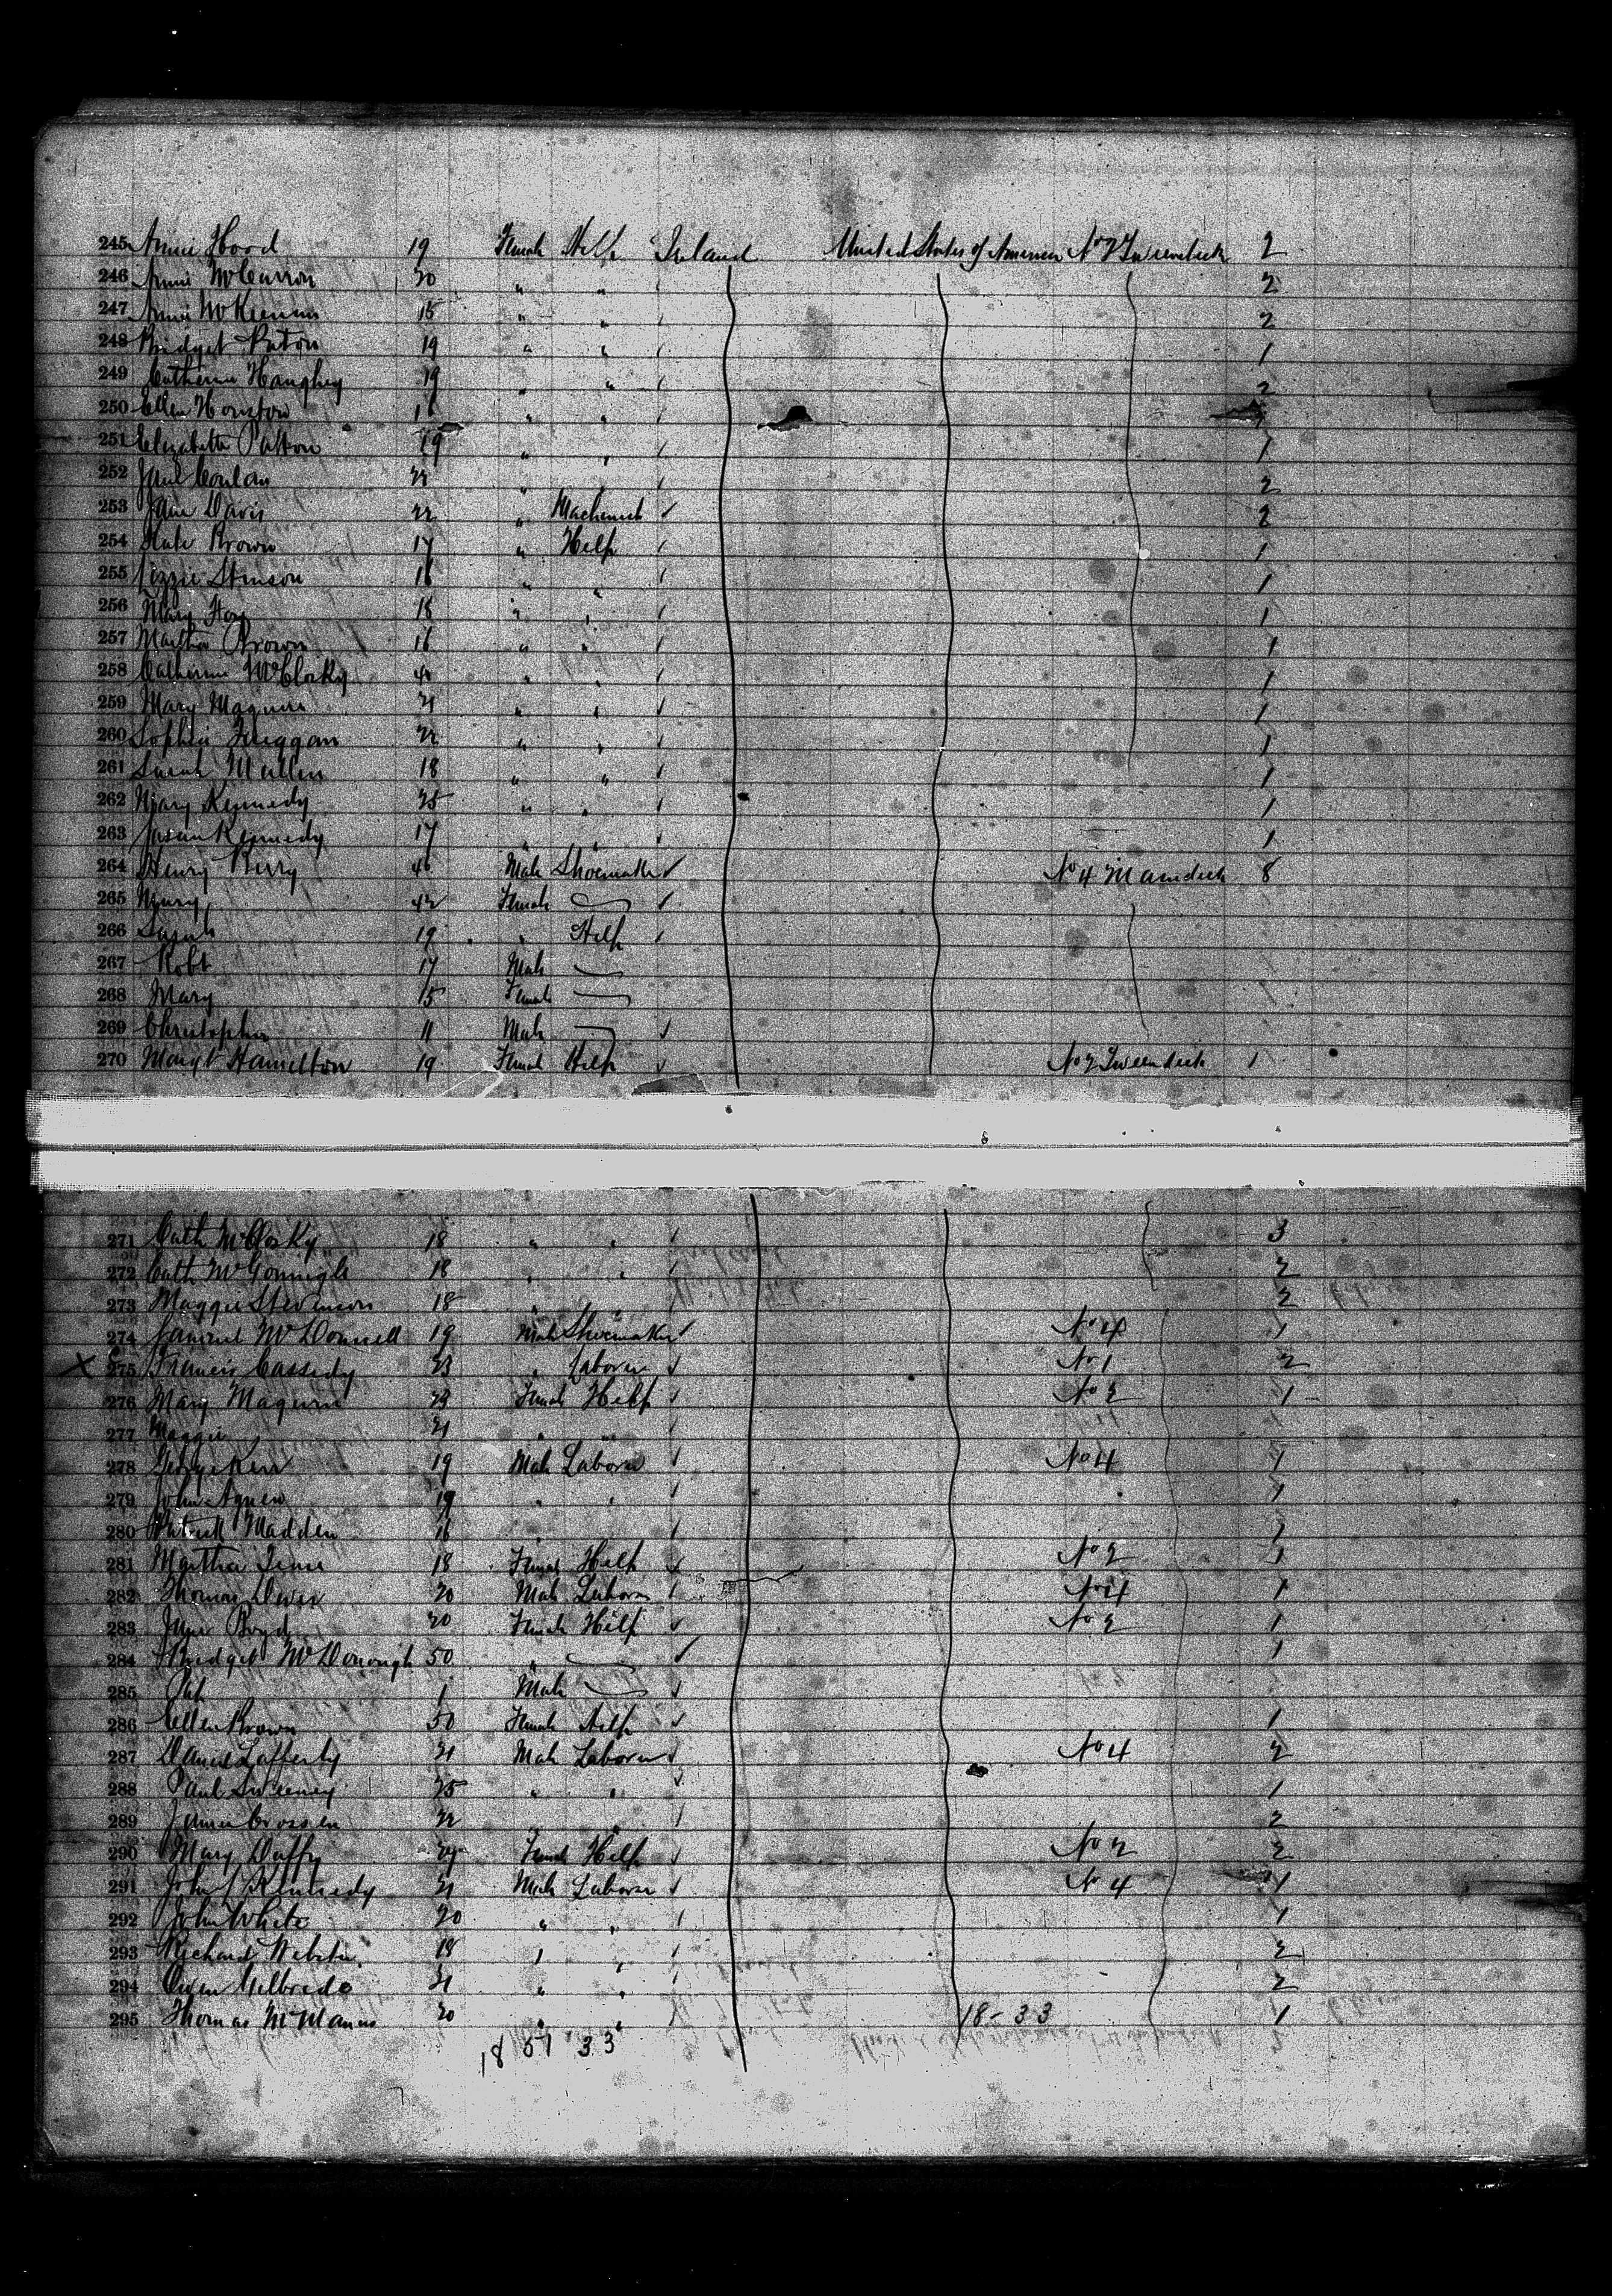 245 Annie Hood 19 Female Help Ireland United States of America No 2 Tweendeck 2
246 Annie McCurron 20 " " 2
247 Annie McKienna 15 " " 2
248 Bridget Paton 19 " " 1
249 Catherine Haughey 19 " " 2
250 Ellen Houston " "
251 Elizabeth Patton 19 " " 1
252 Jane Conlan 22 " " 2
253 Jane Davis 22 " 2
254 Kate Brown 17 " Help 1
255 Lizzie Stinson 16 " " 1
256 Mary Hoy 18 " " 1
257 Martha Brown 16 " " 1
258 Catherine McClosky " " 1
259 Mary Maguire 21 " " 1
260 Sophia " " 1
261 Sarah Mullen 18 " " 1
262 Mary Kennedy 25 " " 1
263 Susan Kennedy 17 " " 1
264 Henry Perry 46 Male Shoemaker No 4 Maindeck 8
265 Mary 42 Female
266 Sarah 19 " Help
267 Robt 17 Male
268 Mary 15 Female
269 Christopher 11 Male
270 Margt Hamilton 19 Female Help No 2 Tweendeck 1
271 Cath McClosky 18 " " 3
272 Cath McGonnigle 18 " " 2
273 Maggie Stevenson 18 " " 2
274 Samuel McDonnell 19 Male Shoemaker No 4 1
X 275 Francis Cassidy 23 " Laborer No 1 2
276 Mary Maguire 23 Female Help No 2 1
277 Maggie 21 " "
278 George Kerr 19 Male Laborer No 4 1
279 John Agnew 19 " " 1
280 Patrick Madden 16 1
281 Martha 18 Female Help No 2 1
282 Thomas 20 Male Laborer No 4 1
283 Jane Boyd 20 Female Help No 2 1
284 Bridget McDonough 50 " 1
285 Pat 1 Male
286 Ellen Brown 50 Female Help 1
287 Daniel Lafferty 21 Male Laborer No 4 2
288 Paul Sweeney 25 " " 1
289 James Crossen 22 " 2
290 Mary Duffy Female Help No 2 2
291 John Kennedy 21 Male Laborer No 4 1
292 John White 20 " " 1
293 Richard Webster 18 " " 2
294 Owen 21 " " 2
295 Thomas McManus 20 " " 18-33 1
18 51 33